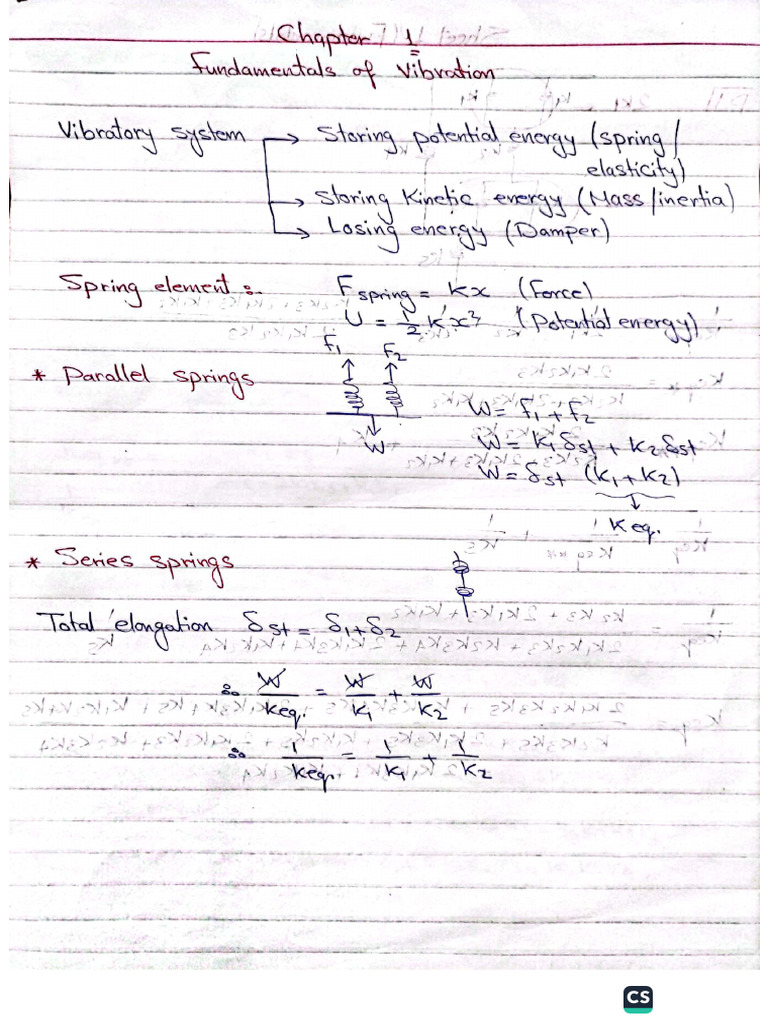 Chapter 1
Fundamentals of Vibration
Vibratory system → Storing potential energy (spring/
elasticity)
→ Storing Kinetic energy (Mass/inertia)
→ Losing energy (Damper)
Spring element :. F spring = Kx (Force)
U = 1/2 K x² (Potential energy)
F₁ F₂
* Parallel springs
W = F₁ + F₂
W W = K₁ δst + K₂ δst
W = δst (K₁ + K₂)
K eq.
* Series springs
Total elongation δst = δ₁ + δ₂
∴ W/Keq. = W/K₁ + W/K₂
∴ 1/Keq. = 1/K₁ + 1/K₂
CS